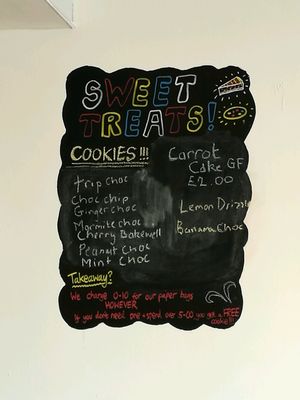 SWEET
TREATS!
COOKIES!!!
Trip Choc
Choc chip
Ginger choc
Marmite choc
Cherry Bakewell
Peanut Choc
Mint Choc
Carrot
Cake GF
£2.00
Lemon Drizzle
Banana Choc
Takeaway?
We charge 0-10 for our paper bags
HOWEVER
If you don't need one + spend over 5-00 you get a FREE
cookie!!!